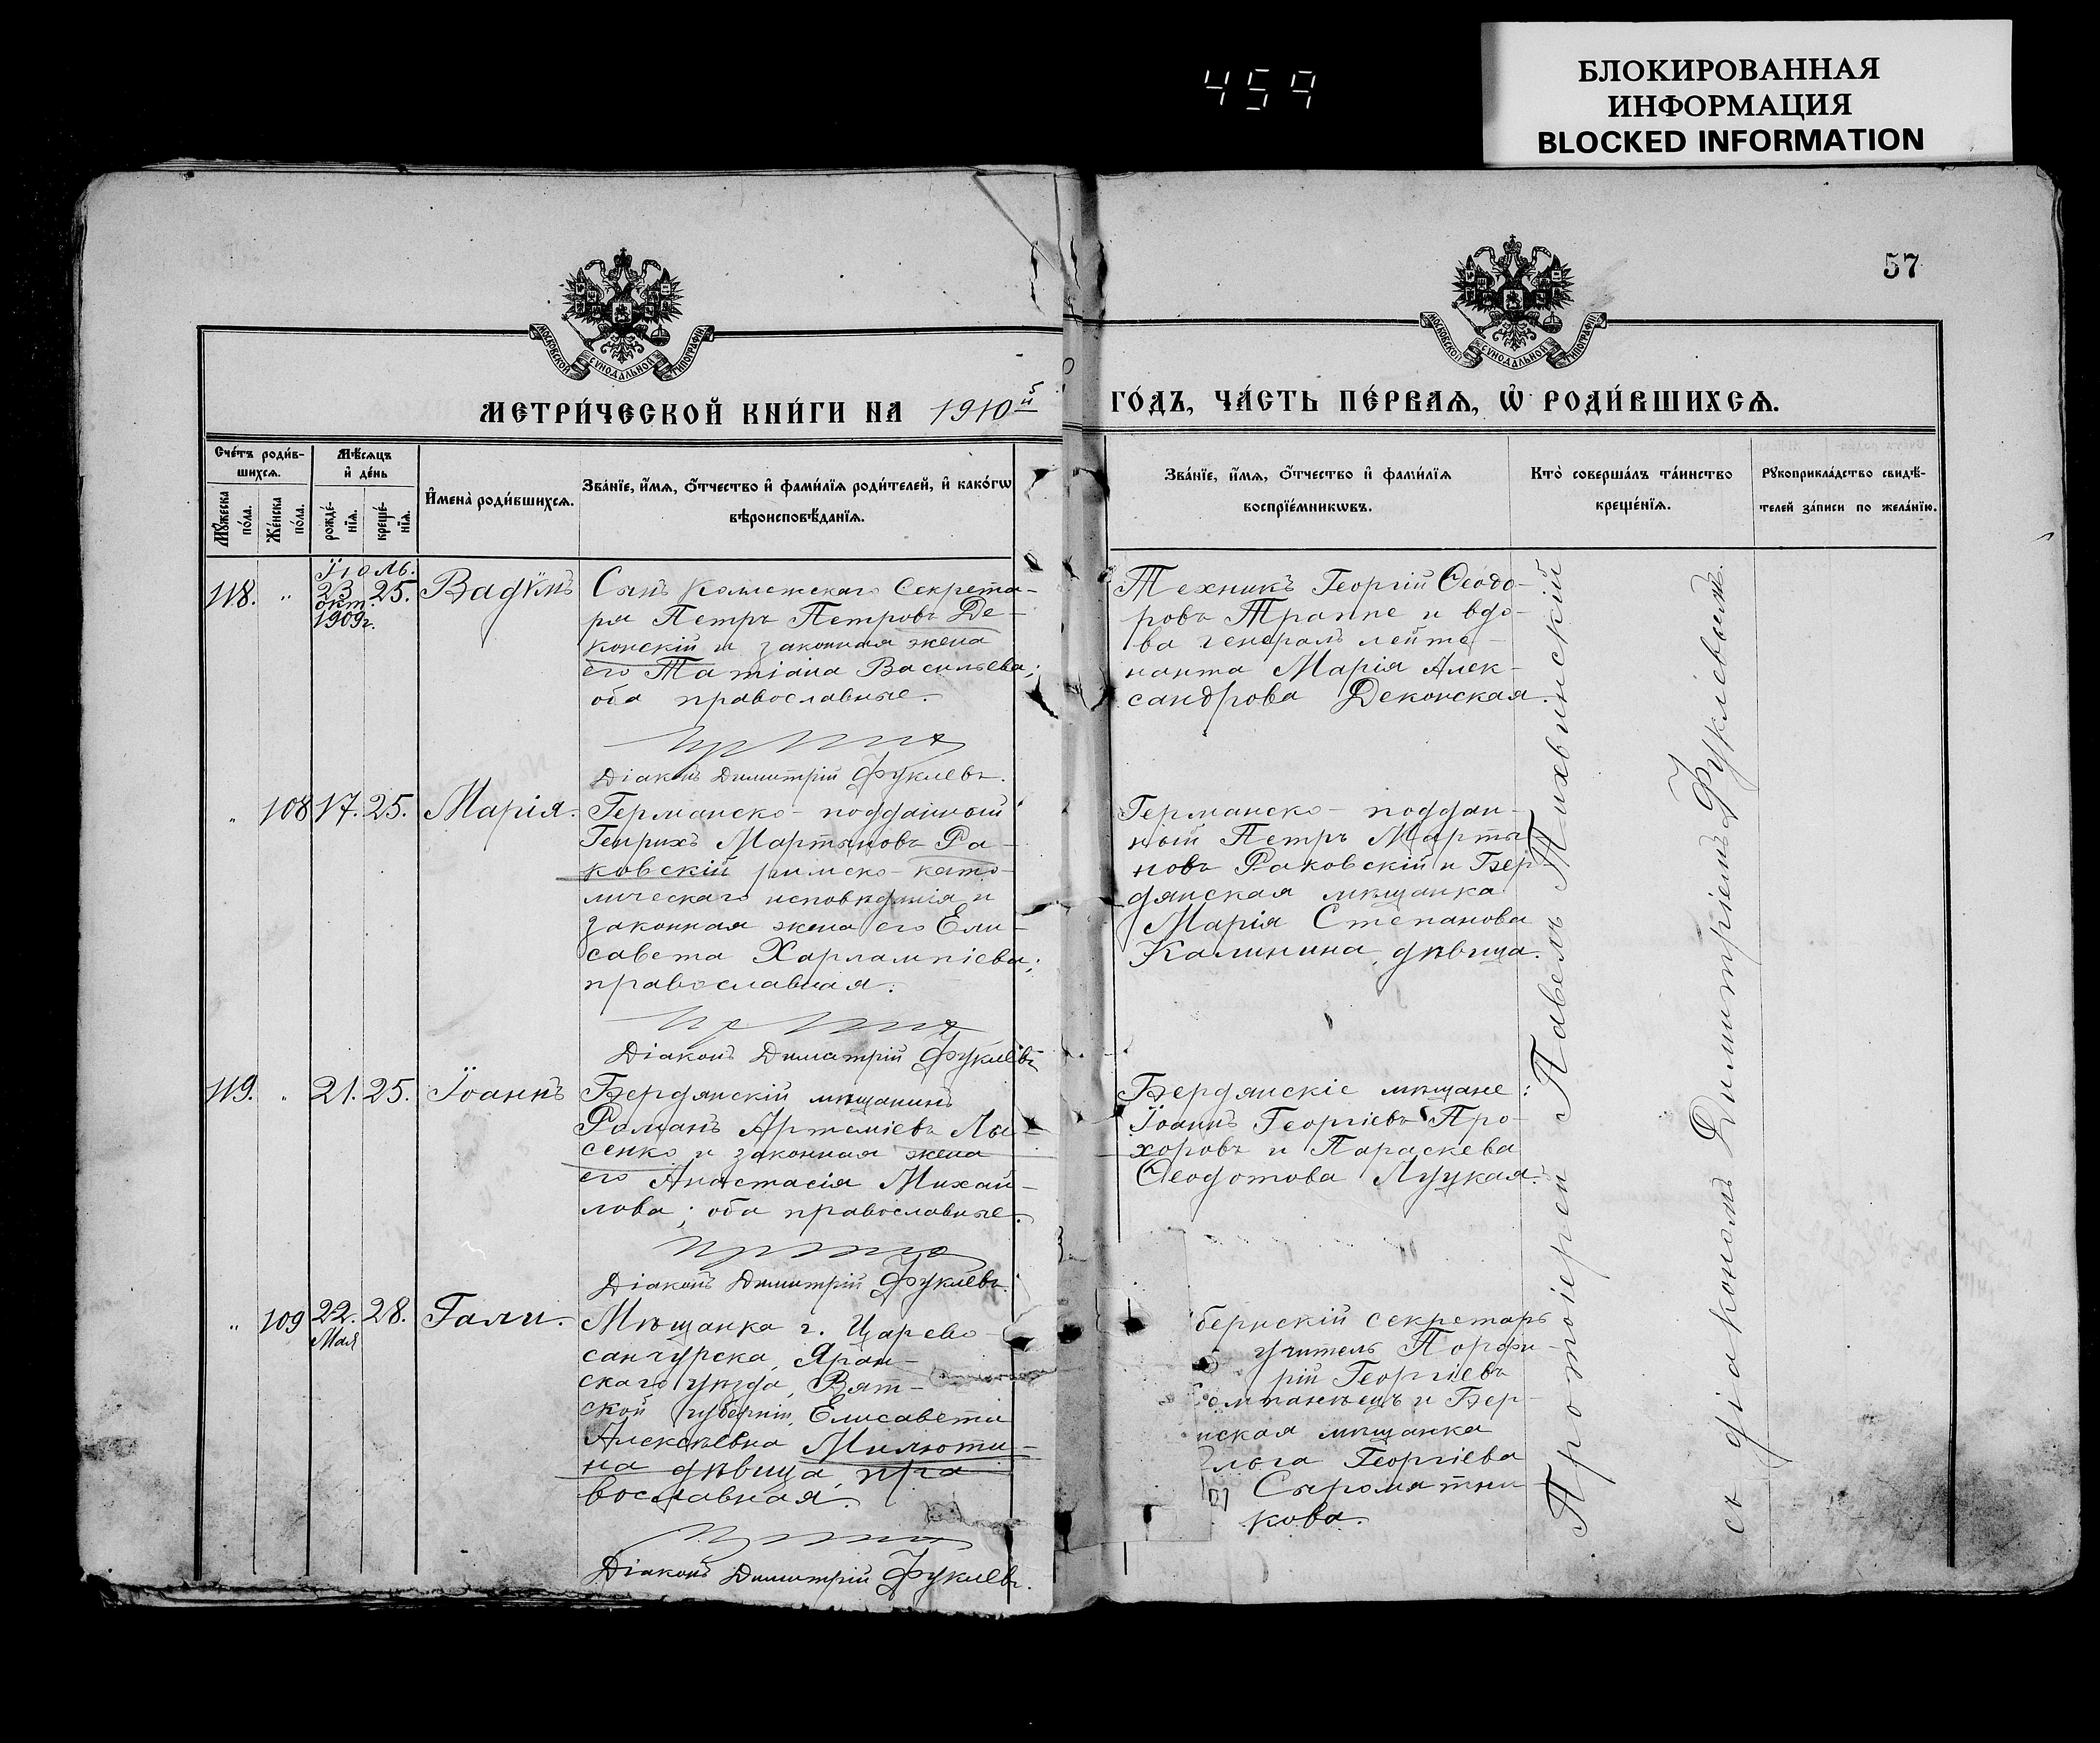 459
БЛОКИРОВАННАЯ
ИНФОРМАЦИЯ
BLOCKED INFORMATION
57
МОСКОВСКОЙ СѴНОДАЛЬНОЙ ТИПОГРАФІИ
МОСКОВСКОЙ СѴНОДАЛЬНОЙ ТИПОГРАФІИ
МЕТРИ́ЧЕСКОЙ КНИ́ГИ НА 1910й
ГО́ДЪ, ЧА́СТЬ ПЕ́РВАѦ, Ѡ҆ РОДИ́ВШИХСѦ.
Сче́тъ роди́в-
шихсѧ.
Мꙋ́жеска
по́ла.
Же́нска
по́ла.
Мѣ́сѧцъ
и҆ де́нь
рожде́-
нїѧ.
креще́-
нїѧ.
И҆мена̀ роди́вшихсѧ.
Зва́нїе, и҆́мѧ, ѻ҆́тчество и҆ фами́лїѧ роди́телей, и҆ како́гѡ
вѣроисповѣ́данїѧ.
Зва́нїе, и҆́мѧ, ѻ҆́тчество и҆ фами́лїѧ
воспрїе́мникѡвъ.
Кто̀ соверша́лъ та́инство
креще́нїѧ.
Рꙋкоприкла́дство свидѣ́-
телей за́писи по жела́нїю.
Іюль.
118. " 23 25. Вадимъ
окт.
1909г.
Сынъ Коллежскаго Секрета-
ря Петръ Петровъ Де-
конскій и законная жена
его Татіана Васильева;
оба православные.
Діаконъ Димитрій Фукліевъ.
Техникъ Георгій Ѳеодо-
ровъ Траппе и вдо-
ва генералъ лейте-
нанта Марія Алек-
сандрова Деконская.
" 108 17. 25. Марія.
Германско-подданный
Генрихъ Мартыновъ Ра-
ковскій римско-като-
лическаго исповѣданія и
законная жена его Ели-
савета Харлампіева;
православная.
Діаконъ Димитрій Фукліевъ
Германско-поддан-
ный Петръ Марты-
новъ Раковскій и Бер-
дянская мѣщанка
Марія Степанова
Калинина, дѣвица.
119. " 21. 25. Іоаннъ
Бердянскій мѣщанинъ
Романъ Артеміевъ Лы-
сенко и законная жена
его Анастасія Михай-
лова; оба православные.
Діаконъ Димитрій Фукліевъ.
Бердянскіе мѣщане:
Іоаннъ Георгіевъ Про-
хоровъ и Параскева
Ѳеодотова Луцкая.
" 109 22. 28. Гали.
Мая
Мѣщанка г. Царево-
санчурска, Яран-
скаго уѣзда, Вят-
ской губерніи, Елисавета
Алексѣевна Милюти-
на дѣвица, пра
вославная.
Діаконъ Димитрій Фукліевъ.
бернскій секретарь
учитель Порфи-
рій Георгіевъ
и Бер-
нская мѣщанка
льга Георгіева
Сыромятни
кова.
Протоіерей Павелъ Тихвинскій
съ діакономъ Димитріемъ Фукліевымъ.